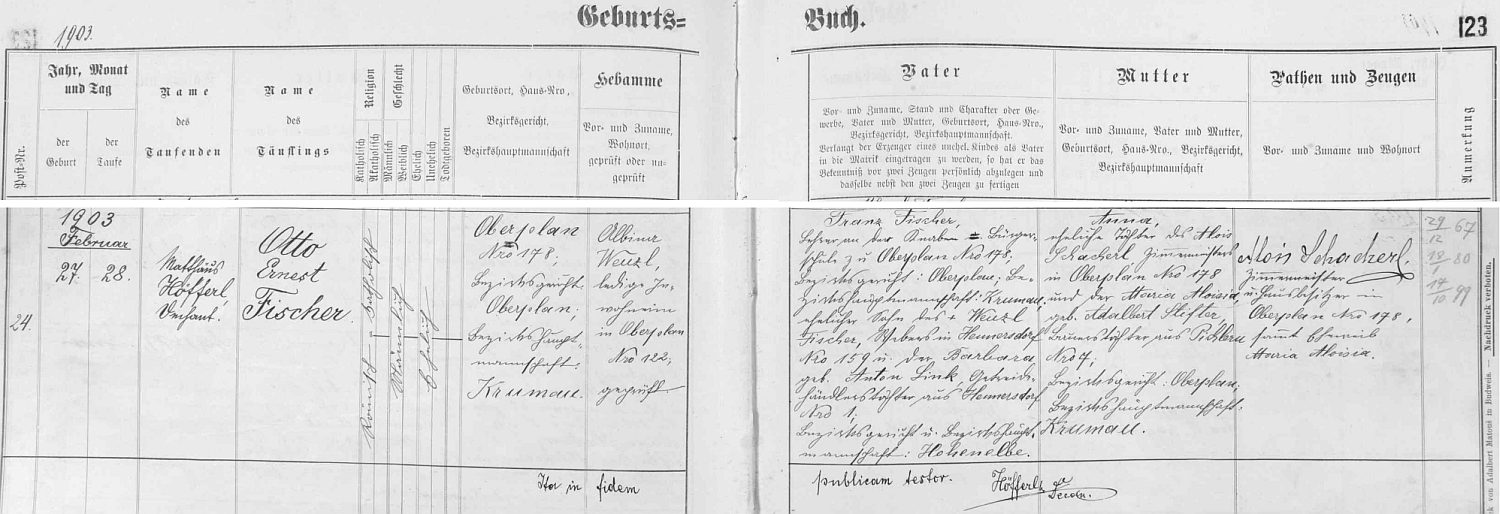 Geburts=
Buch.
1903.
123
Post-Nr.
Jahr, Monat
und Tag
der
Geburt
der
Taufe
Name
des
Taufenden
Name
des
Täuflings
Religion
Katholisch
Akatholisch
Geschlecht
Männlich
Weiblich
Ehelich
Unehelich
Todtgeboren
Geburtsort, Haus-Nro,
Bezirksgericht,
Bezirkshauptmannschaft
Hebamme
Vor- und Zuname,
Wohnort,
geprüft oder un-
geprüft
Vater
Vor- und Zuname, Stand und Charakter oder Ge-
werbe, Vater und Mutter, Geburtsort, Haus-Nro.,
Bezirksgericht, Bezirkshauptmannschaft.
Verlangt der Erzenger eines unehel. Kindes als Vater
in die Matrik eingetragen zu werden, so hat er das
Bekenntniß vor zwei Zeugen persönlich abzulegen und
dasselbe nebst den zwei Zeugen zu fertigen
Mutter
Vor- und Zuname, Vater und Mutter,
Geburtsort, Haus-Nro., Bezirksgericht,
Bezirkshauptmannschaft
Pathen und Zeugen
Vor- und Zuname und Wohnort
Anmerkung
24.
1903
Februar
27.
28.
Matthäus
Höfferl,
Dechant.
Otto
Ernest
Fischer
Römisch-katholisch
Männlich
Ehelich
Oberplan
Nro 178,
Bezirksgericht:
Oberplan;
Bezirkshaupt-
mannschaft:
Krumau.
Albina
Wenzl,
ledige In-
wohnerin
in Oberplan
Nro 122;
geprüft
Franz Fischer,
Lehrer an der Knaben = Bürger-
schule zu Oberplan Nro 178;
Bezirksgericht: Oberplan; Be-
zirkshauptmannschaft: Krumau,
ehelicher Sohn des + Wenzl
Fischer, Webers in Hennersdorf
Nro 159 u. der Barbara
geb. Anton Link, Getreide-
händlerstochter aus Hennersdorf
Nro 1;
Bezirksgericht u. Bezirkshaupt-
mannschaft: Hohenelbe.
Anna,
eheliche Tochter des Alois
Schacherl Zimmermeisters
in Oberplan Nro 178
und der Maria Aloisia
geb. Adalbert Stifter,
Bauerstochter aus Pichlern
Nro 7;
Bezirksgericht: Oberplan;
Bezirkshauptmannschaft:
Krumau.
Alois Schacherl,
Zimmermeister
u. Hausbesitzer in
Oberplan Nro 178,
sammt Eheweib
Maria Aloisia.
29/12 67
18/1 80
14/10 99
Ita in fidem
publicam testor.
Höfferl,
Nachdruck verboten.
Druck von Adalbert Matouš in Budweis.